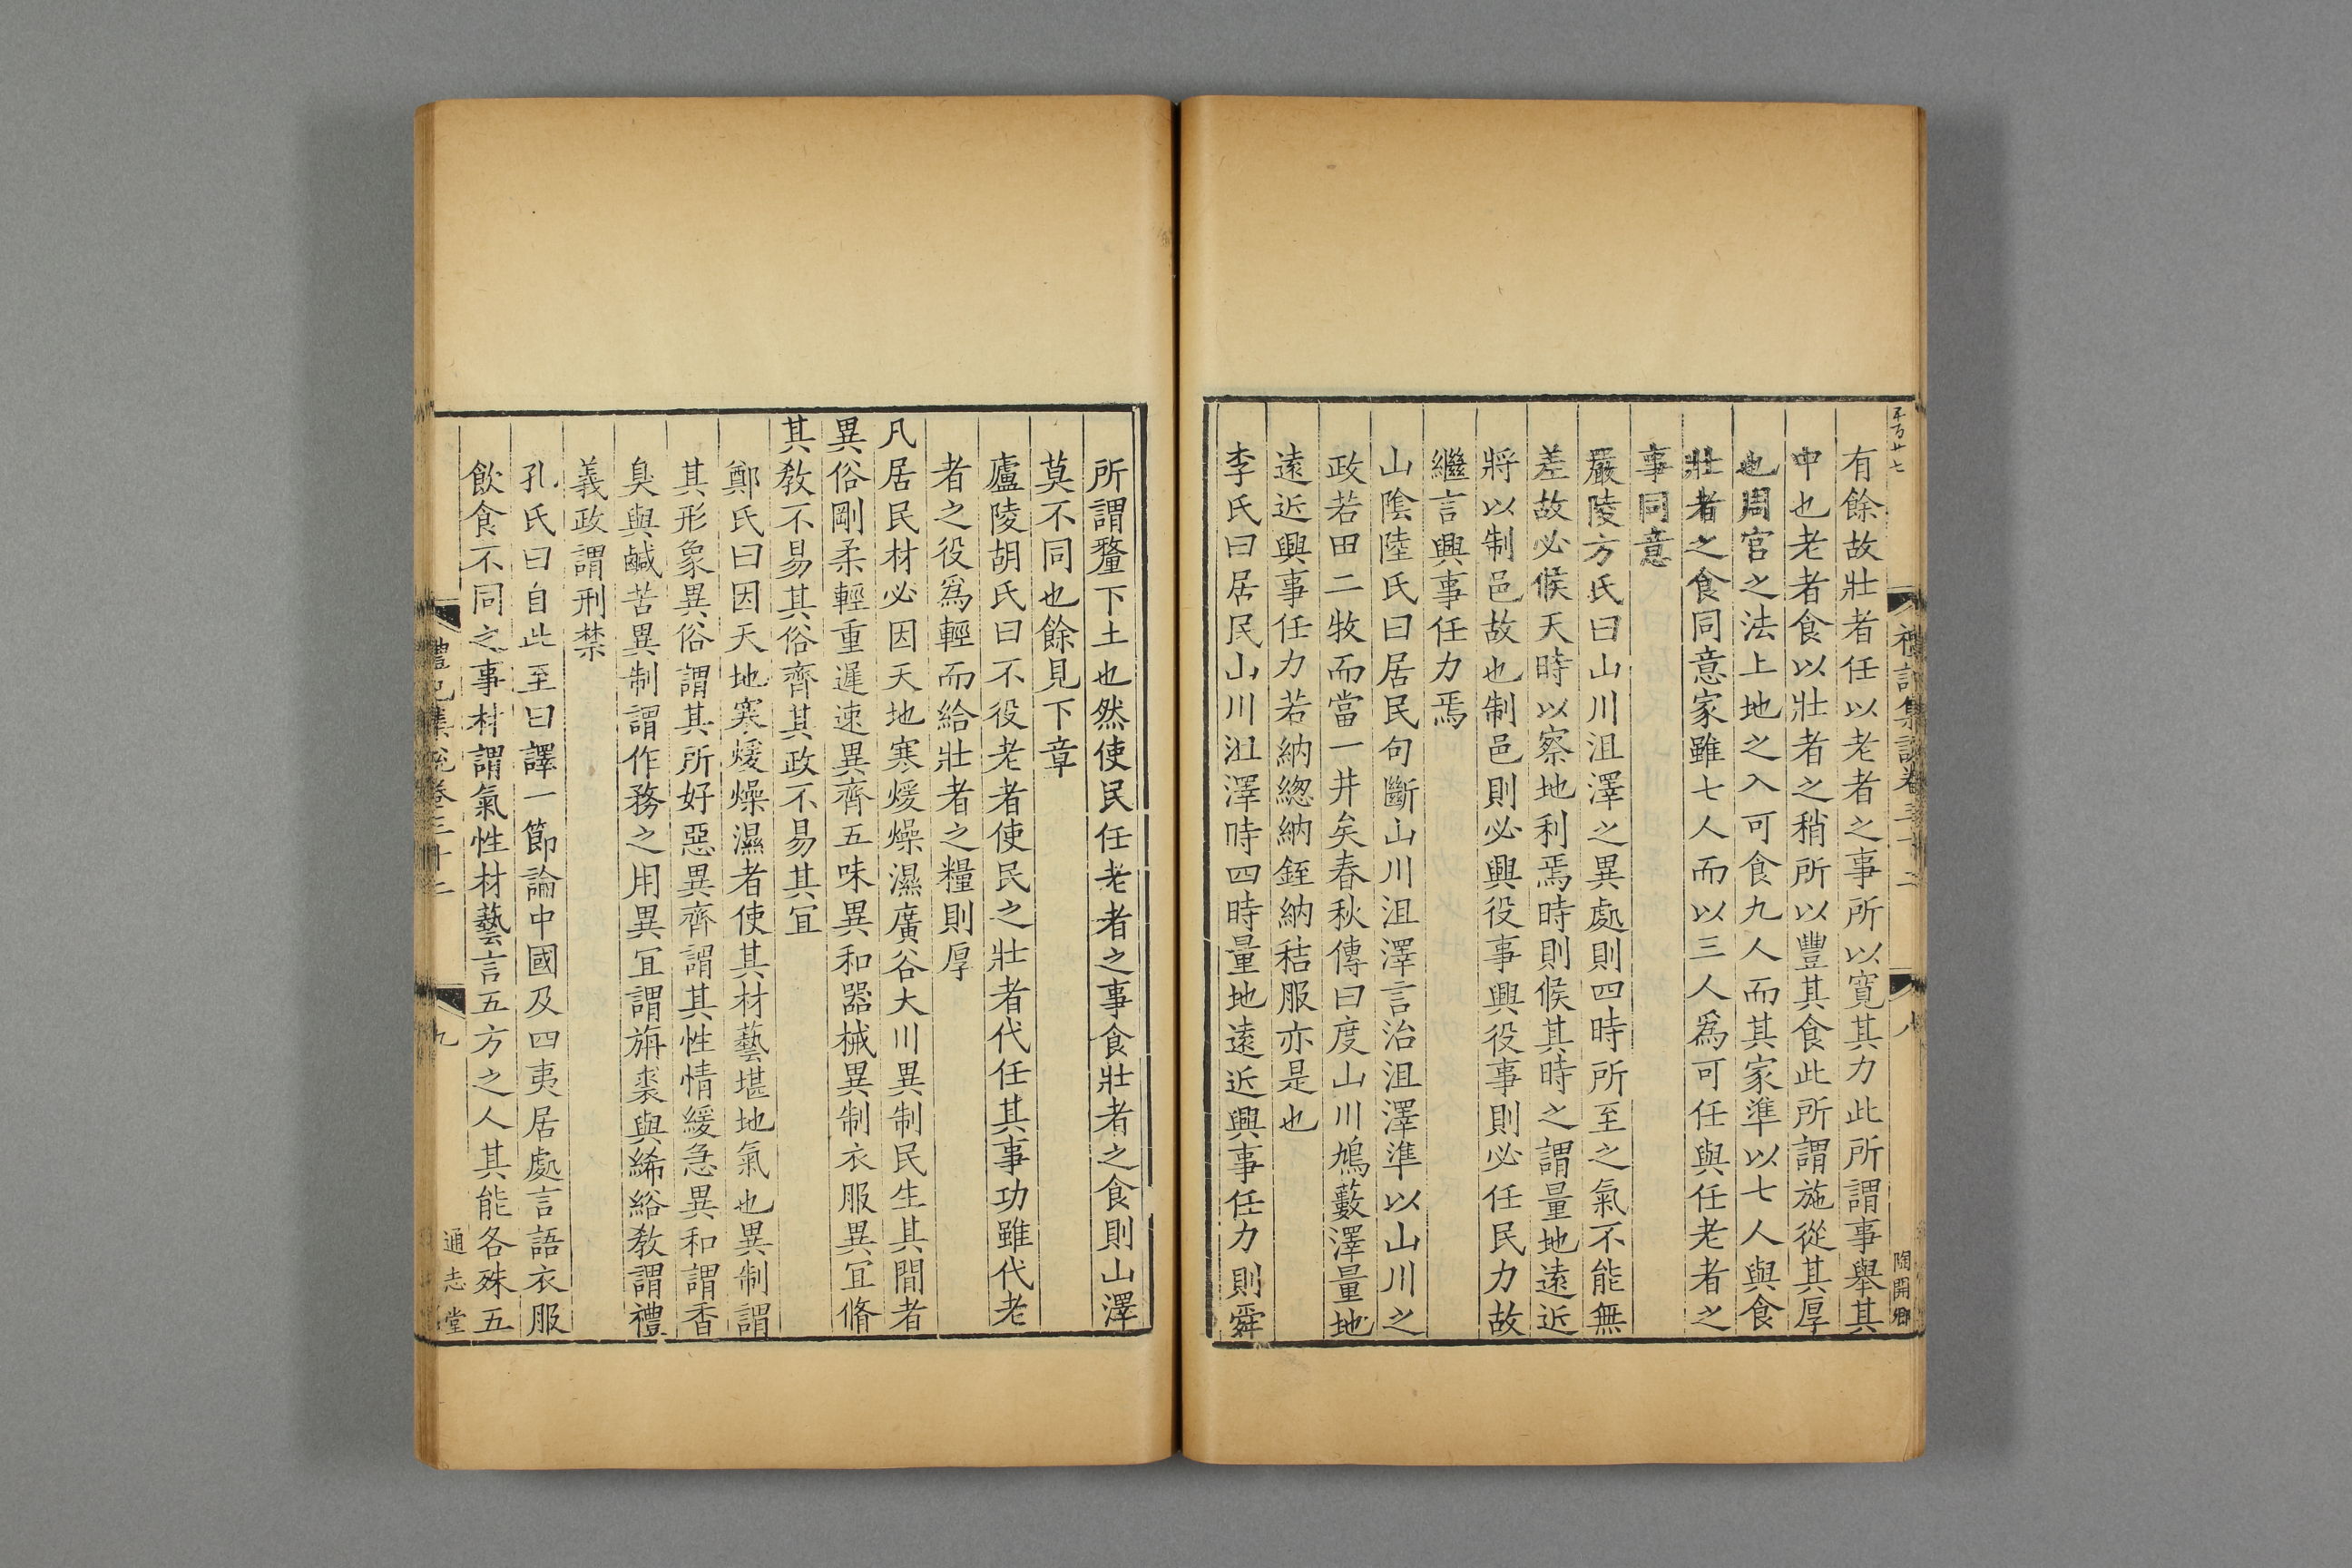 有餘故壯者任以老者之事所以寬其力此所謂事舉其
中也老者食以壯者之稍所以豐其食此所謂施從其厚
也周官之法上地之入可食九人而其家準以七人與食
壯者之食同意家雖七人而以三人爲可任與任老者之
事同意
嚴陵方氏曰山川沮澤之異處則四時所至之氣不能無
差故必候天時以察地利焉時則候其時之謂量地遠近
將以制邑故也制邑則必興役事興役事則必任民力故
繼言興事任力焉
山隂陸氏曰居民句斷山川沮澤言治沮澤準以山川之
政若田二牧而當一井矣春秋傳曰度山川鳩藪澤量地
遠近興事任力若納緫納銍納秸服亦是也
李氏曰居民山川沮澤時四時量地遠近興事任力則舜
禮記集說卷三十二
八
陶開鄉
所謂釐下土也然使民任老者之事食壯者之食則山澤
莫不同也餘見下章
廬陵胡氏曰不役老者使民之壯者代任其事功雖代老
者之役爲輕而給壯者之糧則厚
凡居民材必因天地寒煖燥濕廣谷大川異制民生其閒者
異俗剛柔輕重遲速異齊五味異和器械異制衣服異宜脩
其敎不易其俗齊其政不易其宜
鄭氏曰因天地寒煖燥濕者使其材藝堪地氣也異制謂
其形象異俗謂其所好惡異齊謂其性情緩急異和謂香
臭與鹹苦異制謂作務之用異宜謂旃裘與絺綌敎謂禮
義政謂刑禁
孔氏曰自此至曰譯一節論中國及四夷居處言語衣服
飲食不同之事材謂氣性材藝言五方之人其能各殊五
禮記集說卷三十二
九
通志堂